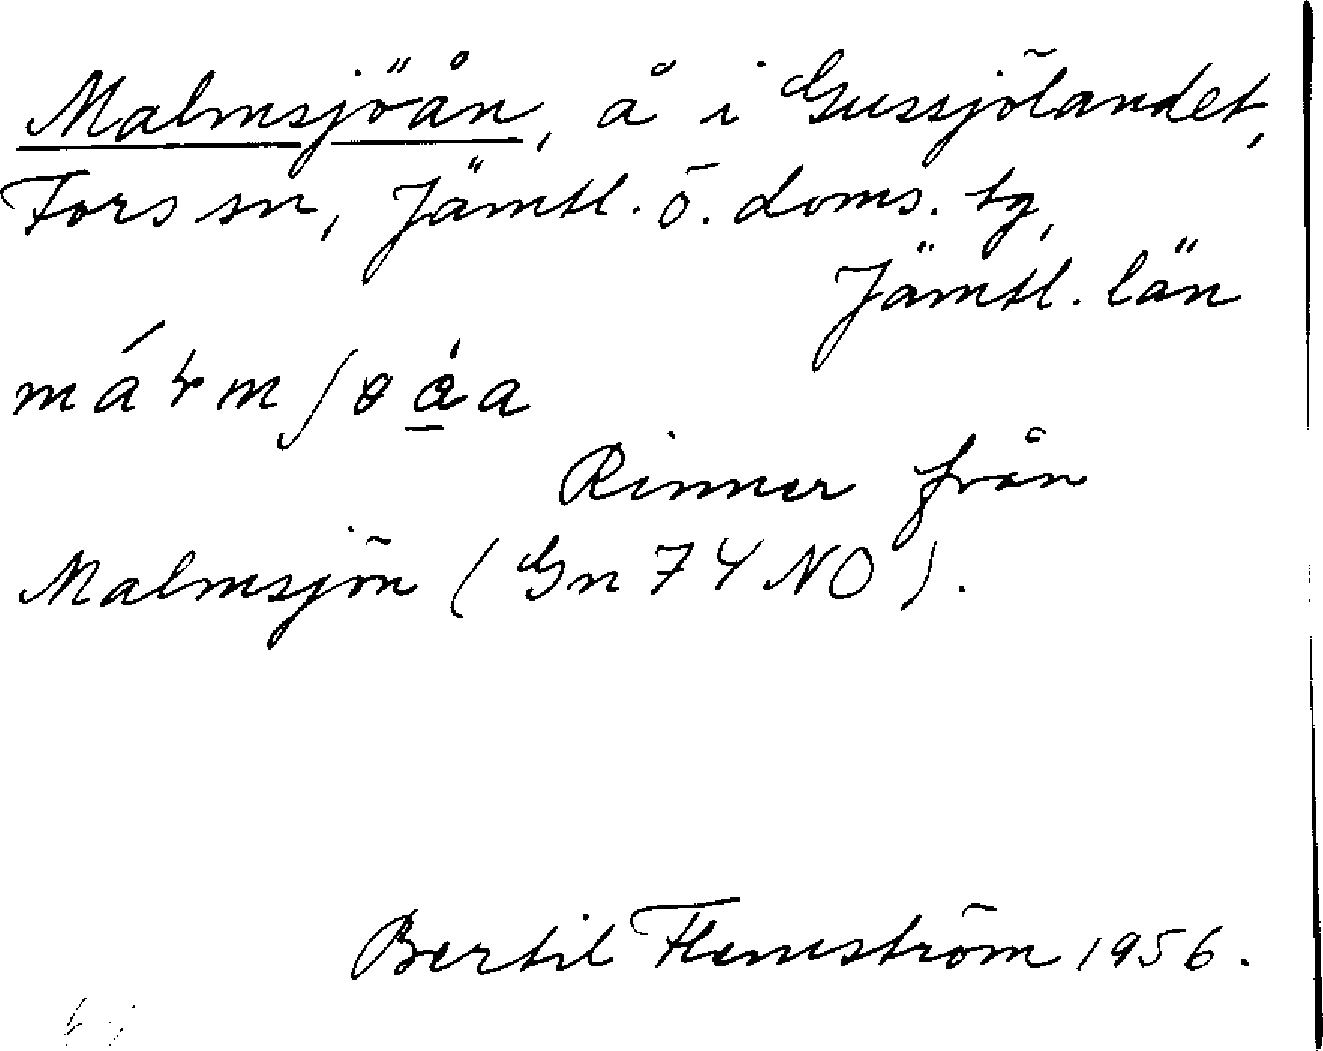 Malmsjöån, å i Gussjölandet,
Fors sn, Jämtl. ö. doms. tg,
Jämtl. län
Rinner från
Malmsjön (Gn 74 NO).
Bertil Flemström 1956.